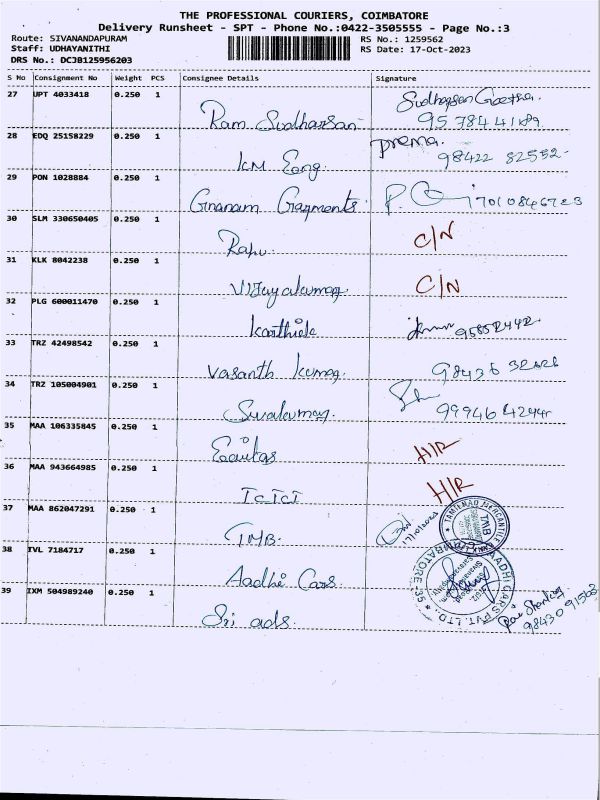 THE PROFESSIONAL COURIERS, COIMBATORE
Delivery Runsheet - SPT - Phone No.:0422-3505555 - Page No.:3
Route: SIVANANDAPURAM RS No.: 1259562
Staff: UDHAYANITHI RS Date: 17-Oct-2023
DRS No.: DCJB125956203
S No Consignment No Weight PCS Consignee Details Signature
27 UPT 4033418 0.250 1 Ram Sudharsan
28 EDQ 25158229 0.250 1 KM Eang prema. 98422 82552
29 PON 1028884 0.250 1 Gnanam Garments P. 7010846723
30 SLM 330650405 0.250 1 Rahu C/N
31 KLK 8042238 0.250 1 Vijayakumar C/N
32 PLG 600011470 0.250 1 Karthick
33 TRZ 42498542 0.250 1 Vasanth Kumar 98436
34 TRZ 105004901 0.250 1 Sivakumar 99946
35 MAA 106335845 0.250 1 Equitas H/R
36 MAA 943664985 0.250 1 ICICI H/R
37 MAA 862047291 0.250 1 TMB. TAMILNAD MERCANTILE BANK TMB
38 IVL 7184717 0.250 1 Aadhi Cars AADHI CARS PVT. LTD. COIMBATORE-35
39 IXM 504989240 0.250 1 Sri ads.